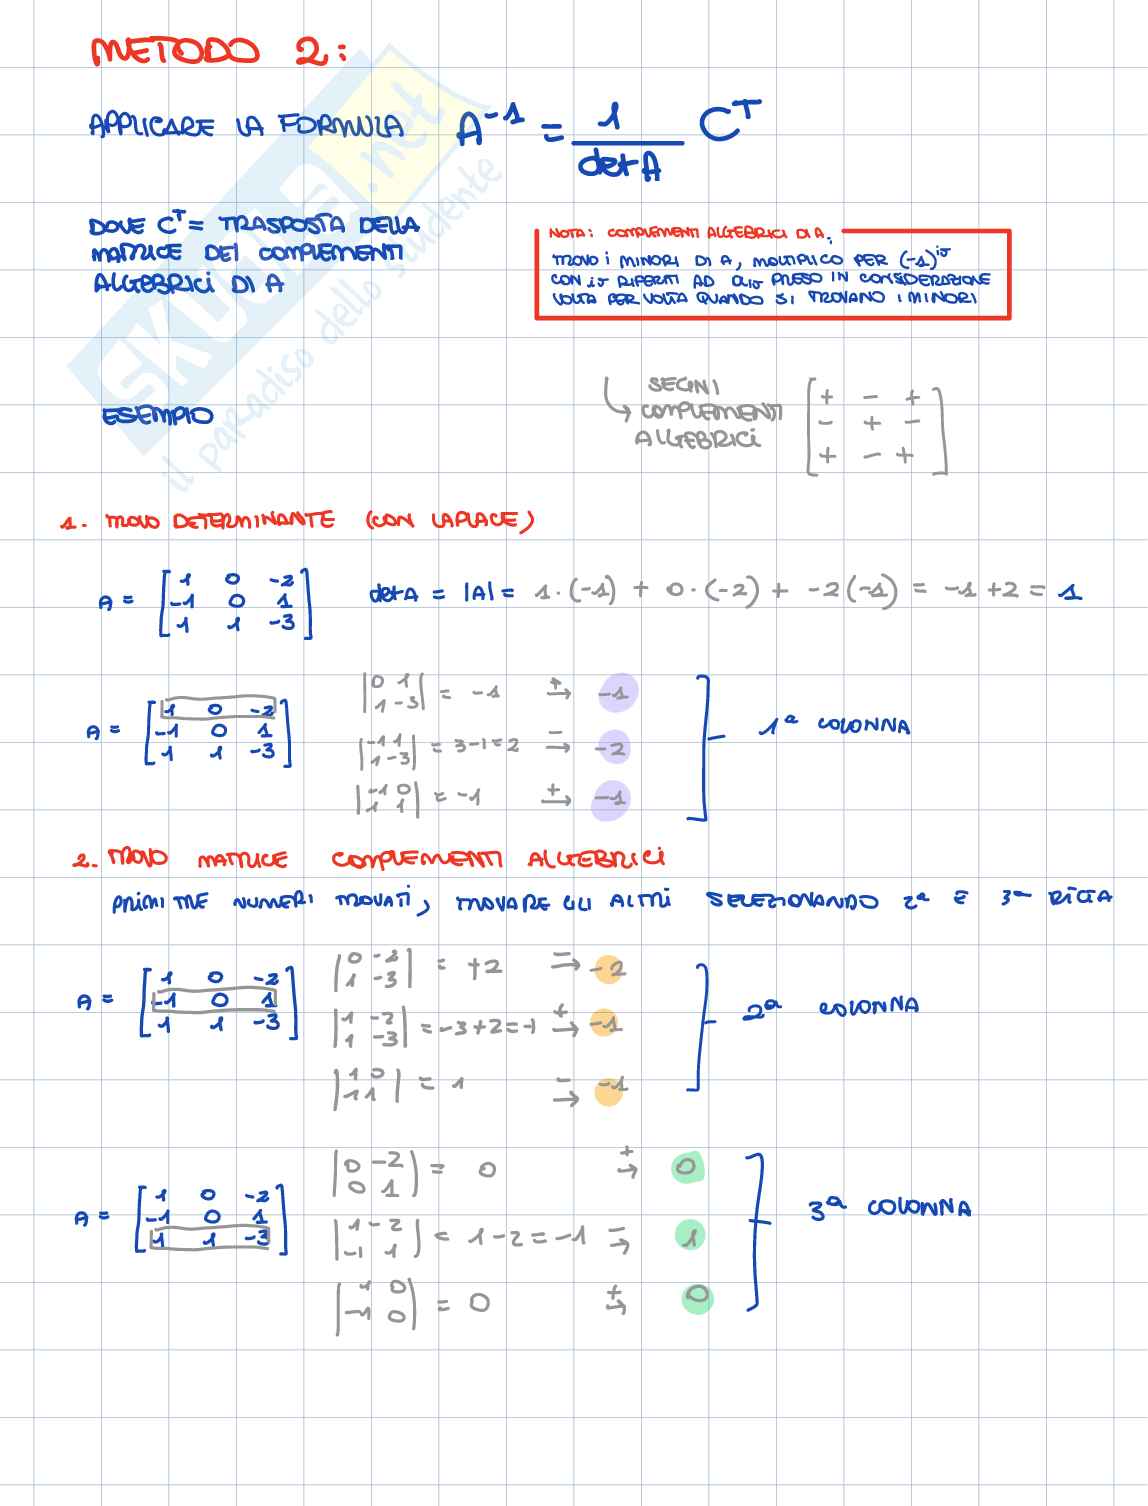 METODO 2:
APPLICARE LA FORMULA A⁻¹ = 1/detA Cᵀ
DOVE Cᵀ = TRASPOSTA DELLA
MATRICE DEI COMPLEMENTI
ALGEBRICI DI A
NOTA: COMPLEMENTI ALGEBRICI DI A.
TROVO I MINORI DI A, MOLTIPLICO PER (-1)ⁱᴶ
CON iJ RIFERITI AD aiJ PRESO IN CONSIDERAZIONE
VOLTA PER VOLTA QUANDO SI TROVANO I MINORI
SEGNI
COMPLEMENTI
ALGEBRICI
+ - +
- + -
+ - +
ESEMPIO
1. TROVO DETERMINANTE (CON LAPLACE)
A = [1 0 -2
-1 0 1
1 1 -3]
detA = |A| = 1·(-1) + 0·(-2) + -2(-1) = -1+2 = 1
A = [1 0 -2
-1 0 1
1 1 -3]
|0 1
1 -3| = -1 +→ -1
|-1 1
1 -3| = 3-1=2 -→ -2
|-1 0
1 1| = -1 +→ -1
1ª COLONNA
2. TROVO MATRICE COMPLEMENTI ALGEBRICI
PRIMI TRE NUMERI TROVATI, TROVARE GLI ALTRI SELEZIONANDO 2ª E 3ª RIGA
A = [1 0 -2
-1 0 1
1 1 -3]
|0 -2
1 -3| = +2 -→ -2
|1 -2
1 -3| = -3+2=-1 +→ -1
|1 0
1 1| = 1 -→ -1
2ª COLONNA
A = [1 0 -2
-1 0 1
1 1 -3]
|0 -2
0 1| = 0 +→ 0
|1 -2
-1 1| = 1-2=-1 -→ 1
|1 0
-1 0| = 0 +→ 0
3ª COLONNA
SKUOLA.net
il paradiso dello studente